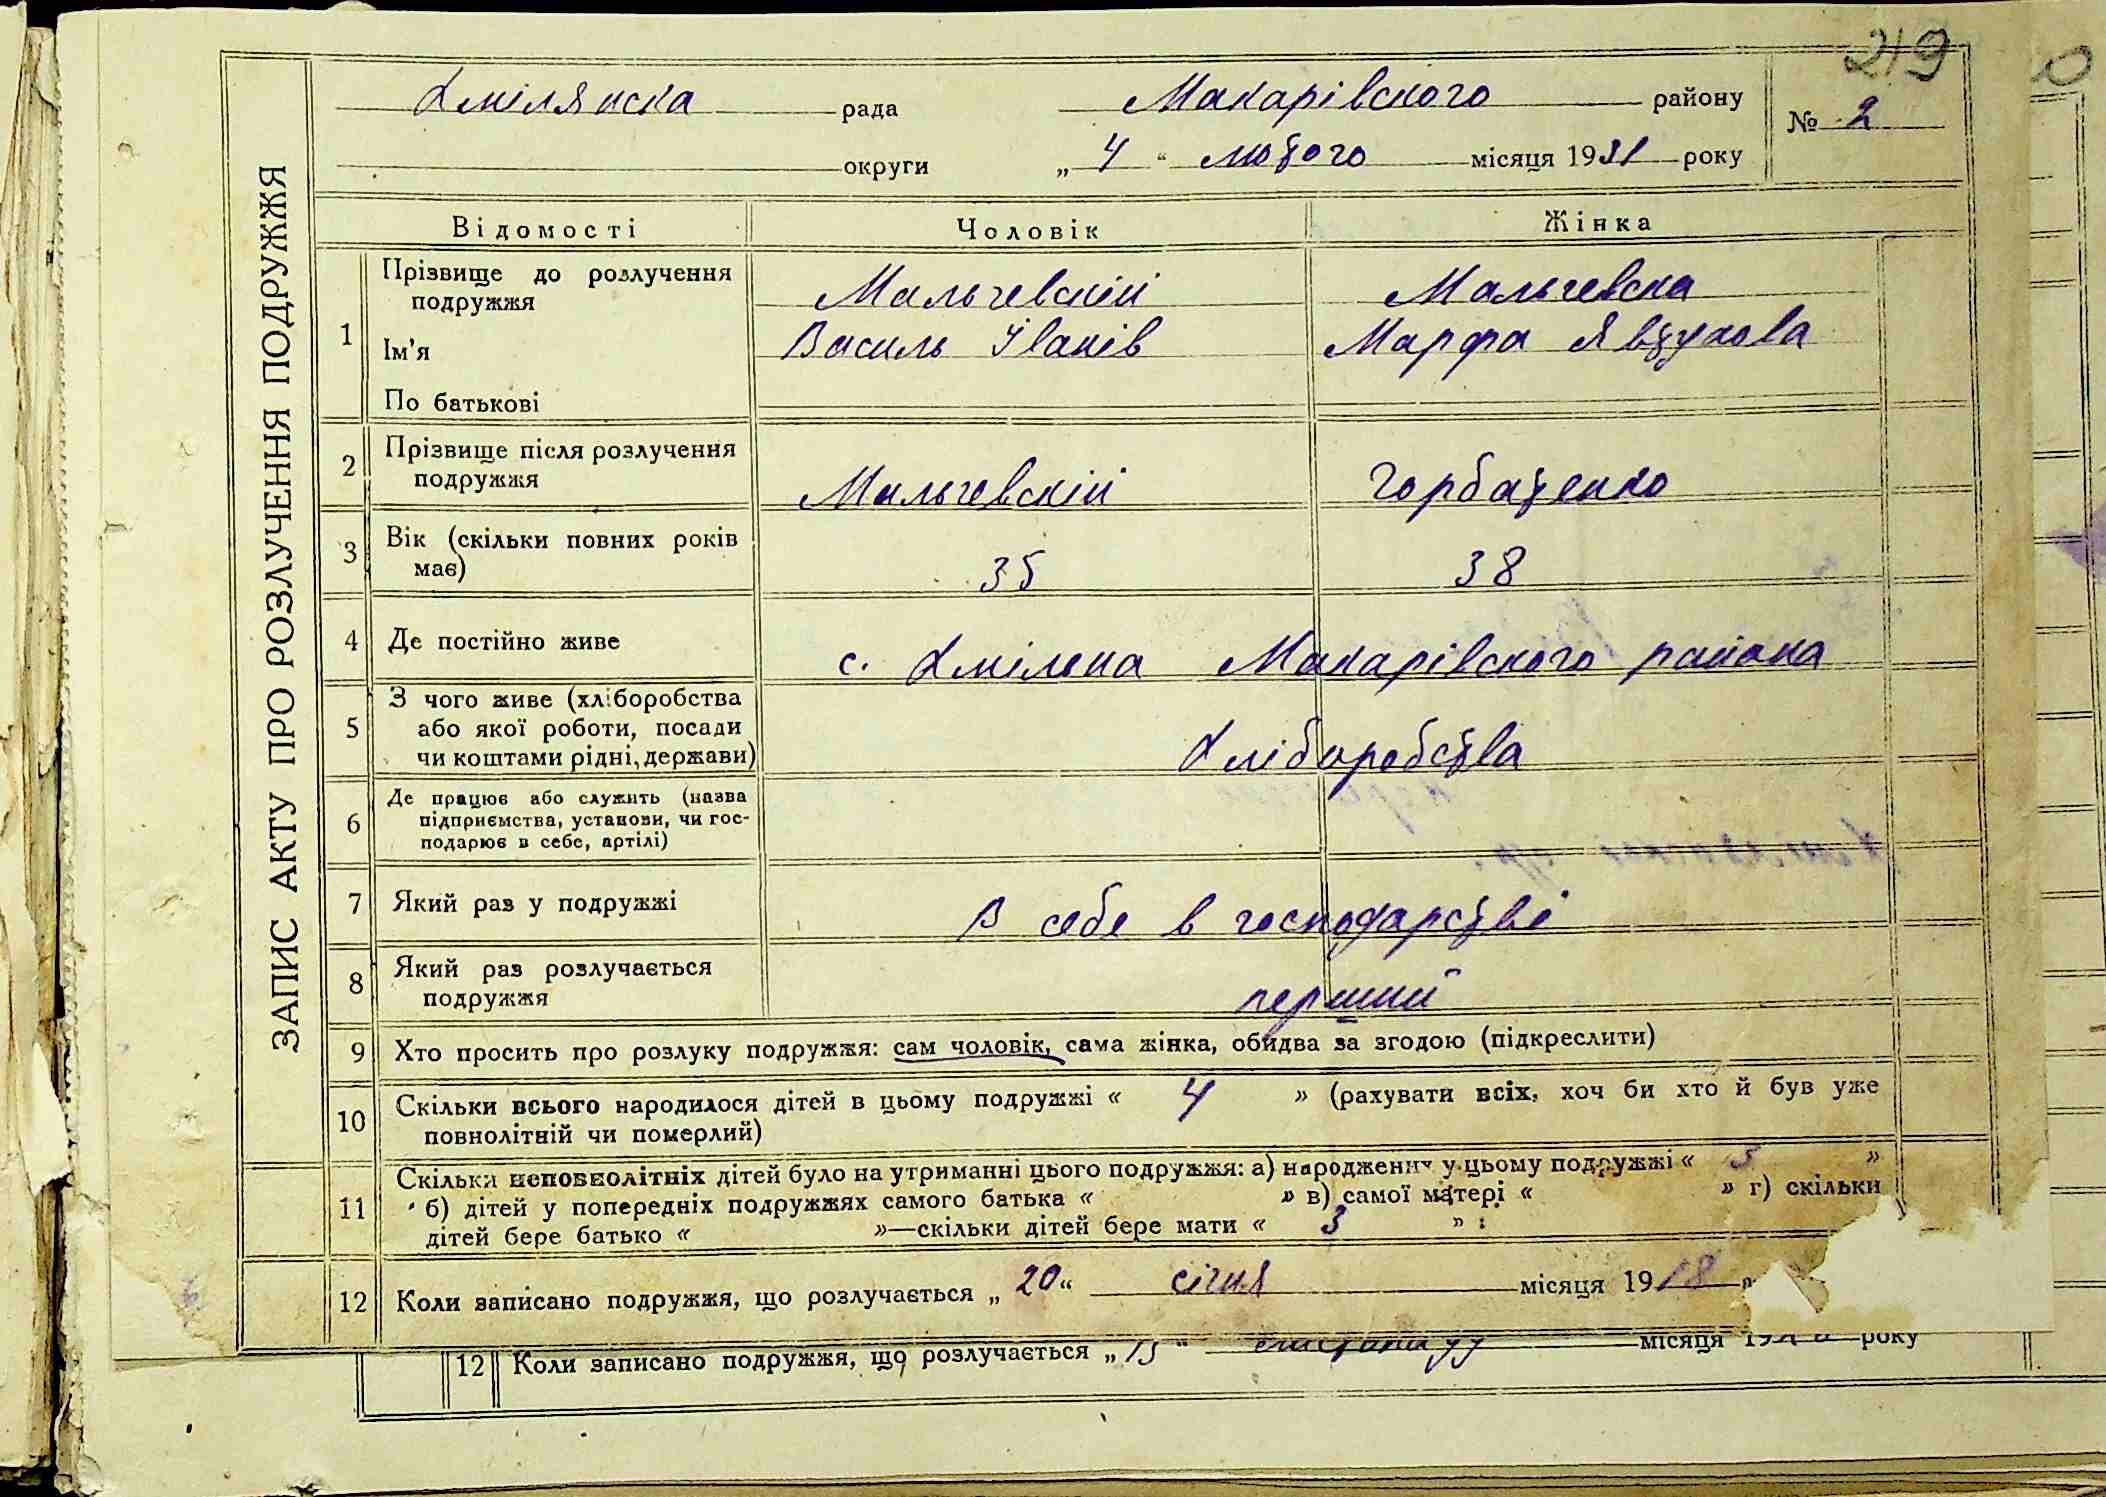 219
Хмілянска рада Макарівского району № 2
округи „ 4 “ лютого місяця 1931 року
ЗАПИС АКТУ ПРО РОЗЛУЧЕННЯ ПОДРУЖЖЯ
Відомості Чоловік Жінка
1 Прізвище до розлучення
подружжя Мальчевскій Мальчевска
Ім'я Василь Іванів Марфа Явтухова
По батькові
2 Прізвище після розлучення
подружжя Мальчевскій Горбатенко
3 Вік (скільки повних років
має) 35 38
4 Де постійно живе с. Хмілена Макарівского района
5 З чого живе (хліборобства
або якої роботи, посади
чи коштами рідні, держави) Хліборобства
6 Де працює або служить (назва
підприємства, установи, чи гос-
подарює в себе, артілі)
7 Який раз у подружжі В себе в господарстві
8 Який раз розлучається
подружжя перший
9 Хто просить про розлуку подружжя: сам чоловік, сама жінка, обидва за згодою (підкреслити)
10 Скільки всього народилося дітей в цьому подружжі « 4 » (рахувати всіх, хоч би хто й був уже
повнолітній чи померлий)
11 Скільки неповнолітніх дітей було на утриманні цього подружжя: а) народжених у цьому подружжі « »
б) дітей у попередніх подружжях самого батька « » в) самої матері « » г) скільки
дітей бере батько « »—скільки дітей бере мати « 3 » :
12 Коли записано подружжя, що розлучається „ 20 “ січня місяця 1918
12 Коли записано подружжя, що розлучається „ 15 “ місяця року